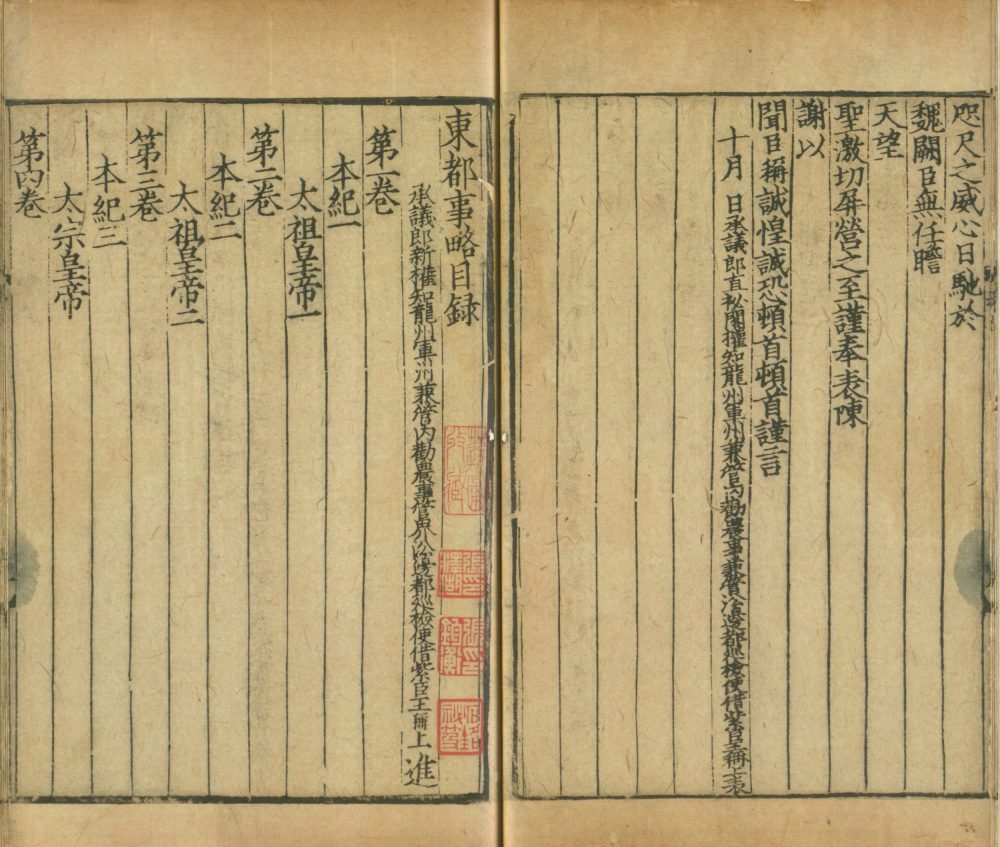 咫尺之威心日馳於
魏闕臣無任瞻
天望
聖激切屏營之至謹奉表陳
謝以
聞臣稱誠惶誠恐頓首頓首謹言
十月 日承議郎直秘閣權知龍州軍州兼管內勸農事兼管沿邊都巡檢使借紫臣王稱上表
東都事略目録
承議郎新權知龍州軍州兼管內勸農事管界沿邊都巡檢使借紫臣王稱上進
第一卷
本紀一
太祖皇帝一
第二卷
本紀二
太祖皇帝二
第三卷
本紀三
太宗皇帝
第四卷